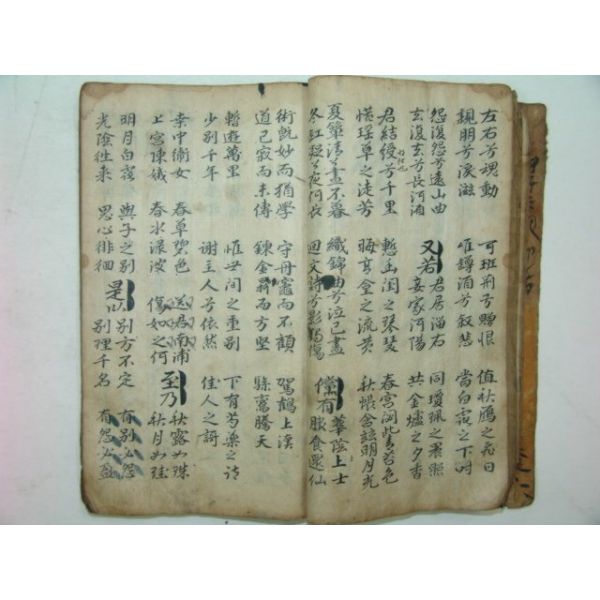 左右兮魂動 可班荊兮贈恨 值秋鴈之飛日
親朋兮淚滋 唯罇酒兮叙悲 當白露之下時
怨復怨兮遠山曲 又若君居淄右 同瓊珮之晨照
去復去兮長河湄 妾家河陽 共金爐之夕香
君結綬兮千里 慙幽閨之琴瑟 春宮閟此青苔色
惜瑤草之徒芳 晦高臺之流黃 秋帳含玆明月光
夏簟淸兮晝不暮 織錦曲兮泣已盡 儻有華陰上士
冬釭凝兮夜何長 迴文詩兮影獨傷 服食還仙
術旣妙而猶學 守丹竈而不顧 駕鶴上漢
道已寂而未傳 鍊金鼎而方堅 驂鸞騰天
暫遊萬里 惟世間之重別 下有芍藥之詩
少別千年 謝主人兮依然 佳人之謌
桒中衛女 春草碧色 送君南浦 至乃秋露如珠
上宮陳娥 春水淥波 傷如之何 秋月如珪
明月白露 與子之別 是以別方不定 有別必怨
光陰往來 思心徘徊 別理千名 有怨必盈